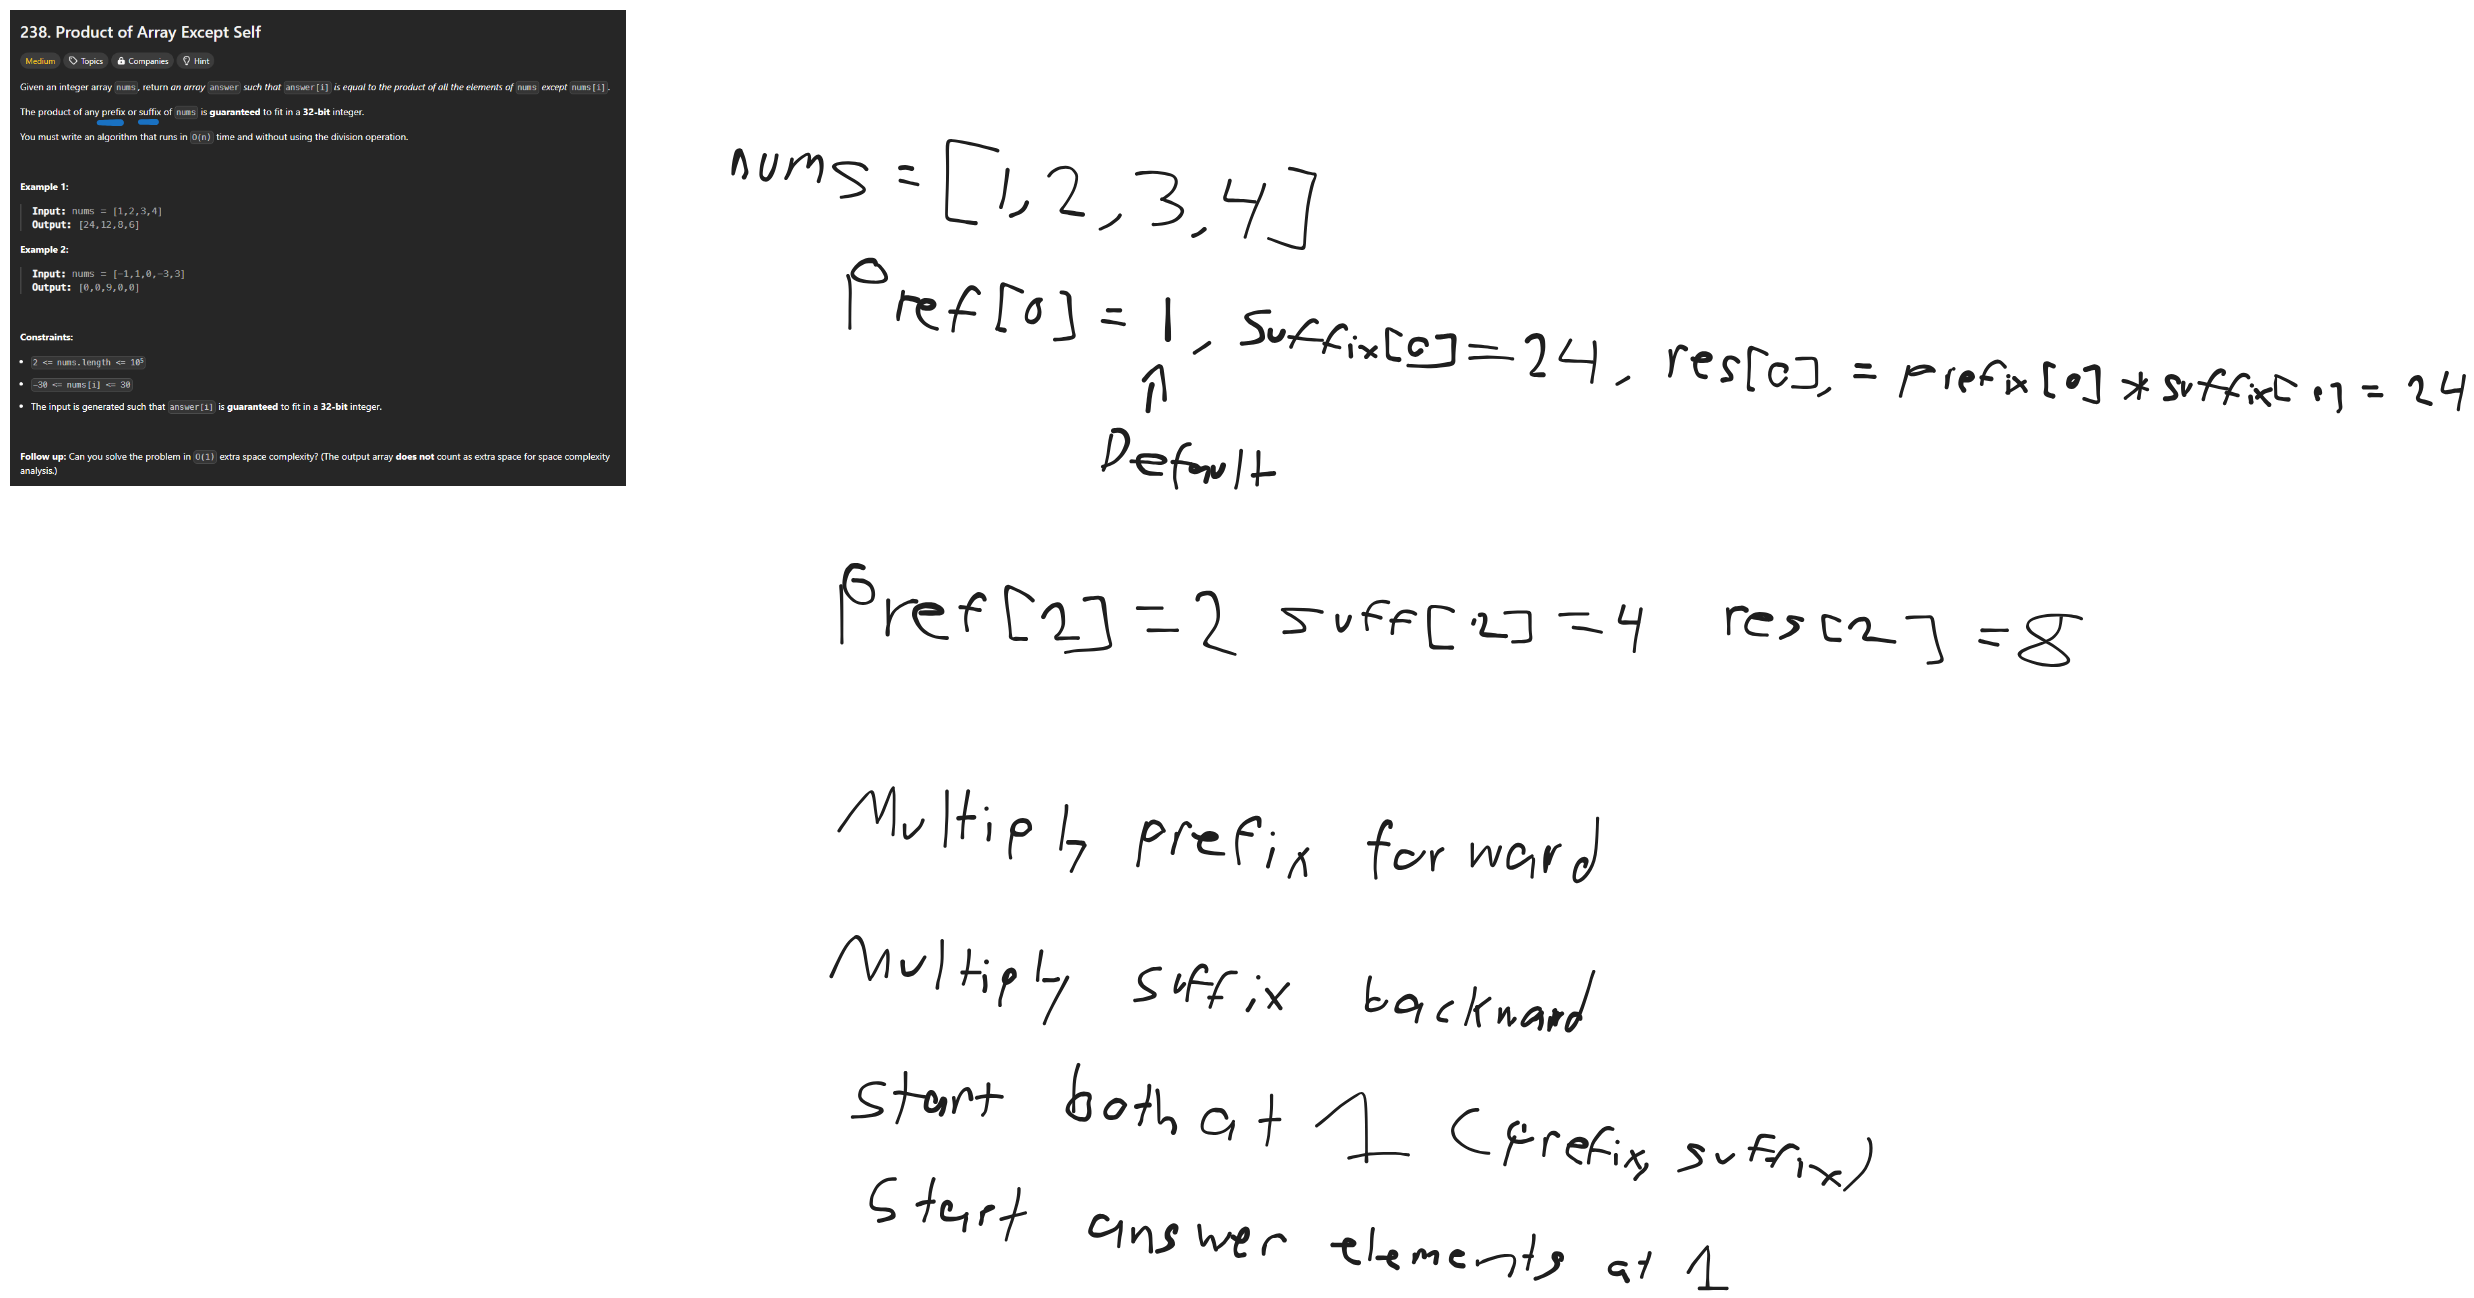 238. Product of Array Except Self
Medium Topics Companies Hint
Given an integer array nums, return an array answer such that answer[i] is equal to the product of all the elements of nums except nums[i].
The product of any prefix or suffix of nums is guaranteed to fit in a 32-bit integer.
You must write an algorithm that runs in O(n) time and without using the division operation.
Example 1:
Input: nums = [1,2,3,4]
Output: [24,12,8,6]
Example 2:
Input: nums = [-1,1,0,-3,3]
Output: [0,0,9,0,0]
Constraints:
• 2 <= nums.length <= 10⁵
• -30 <= nums[i] <= 30
• The input is generated such that answer[i] is guaranteed to fit in a 32-bit integer.
Follow up: Can you solve the problem in O(1) extra space complexity? (The output array does not count as extra space for space complexity
analysis.)
nums = [1,2,3,4]
Pref[0] = 1, suffix[0] = 24, res[0], = prefix[0] * suffix[0] = 24
↑
Default
Pref[2] = 2 suff[2] = 4 res[2] = 8
Multiply prefix forward
Multiply suffix backward
start both at 1 (prefix, suffix)
start answer elements at 1